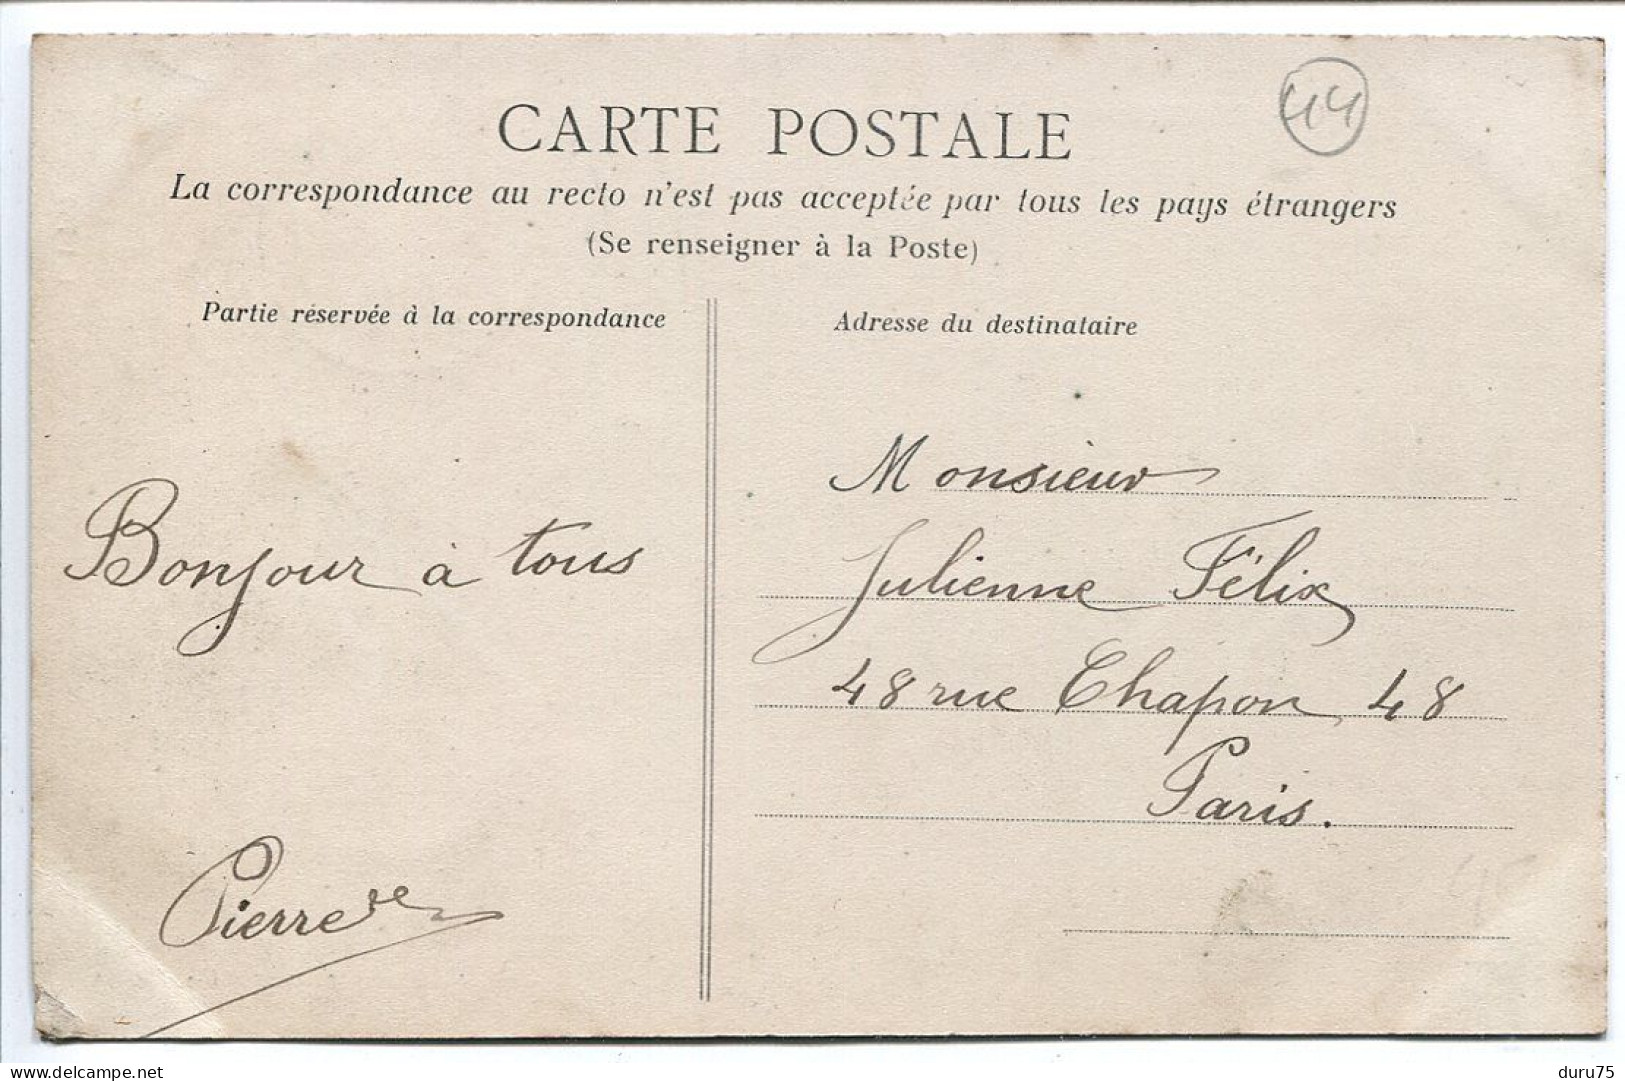 44
CARTE POSTALE
La correspondance au recto n'est pas acceptée par tous les pays étrangers
(Se renseigner à la Poste)
Partie réservée à la correspondance
Bonjour à tous
Pierre
Adresse du destinataire
Monsieur
Julienne Félix
48 rue Chapon 48
Paris.
duru75